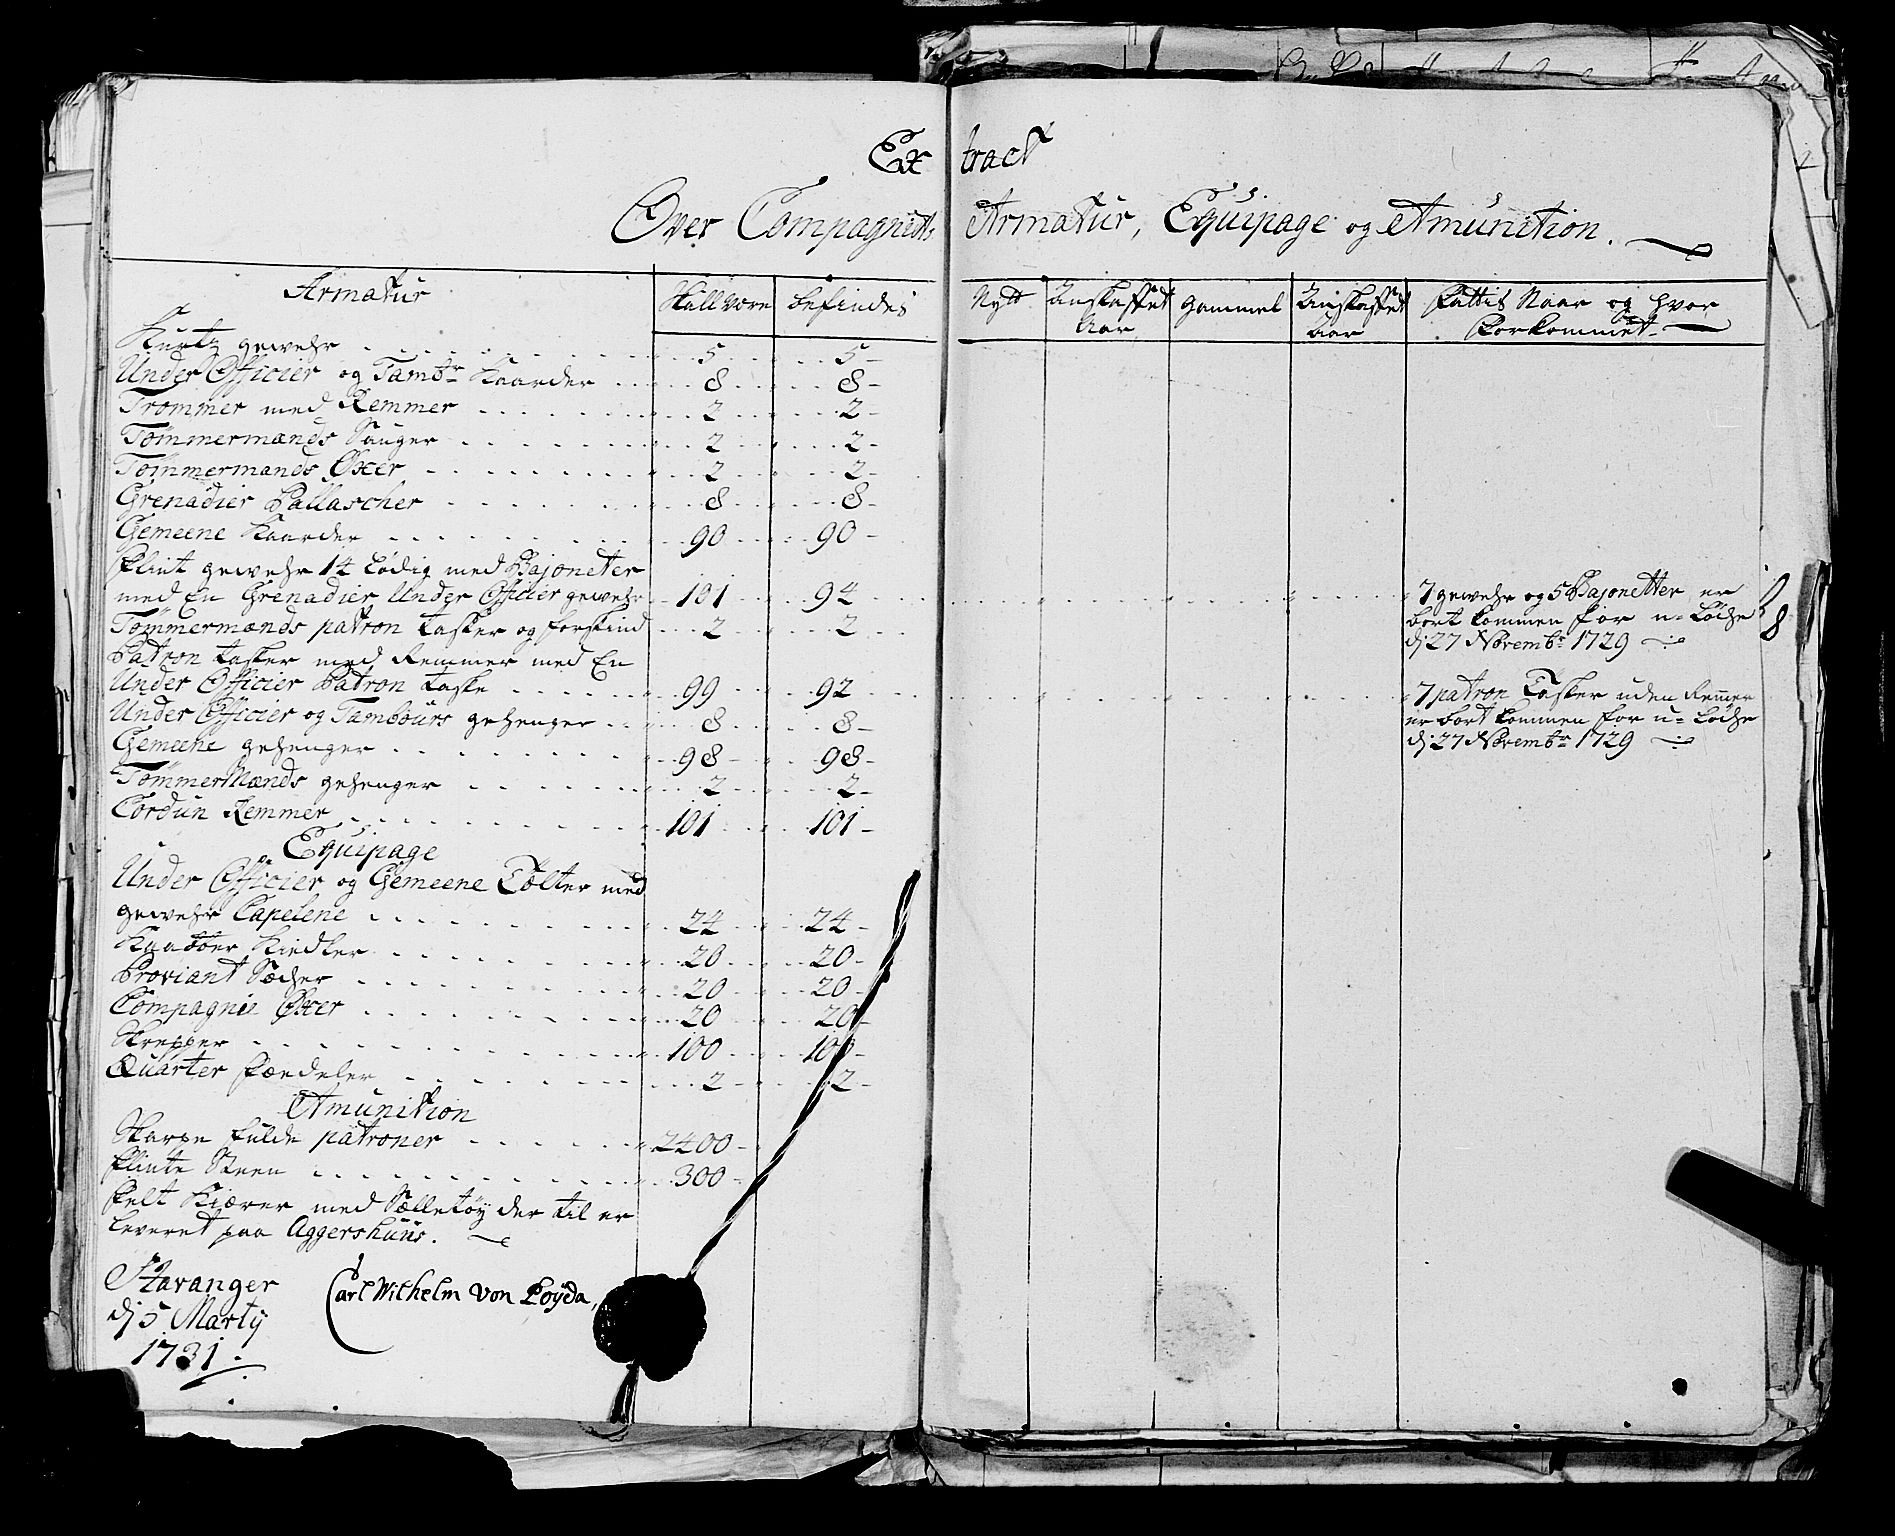 Extract
Over Compagniets Armatur, Equipage og Amunition.
Armatur Skall være befindes Nytt Anskaffet Aar gammel Anskaffet Aar Fattis Naar og hvor forkommet
Kurtz gewehr 5 5
Under Officier og Tambr Kaarder 8 8
Trommer med Remmer 2 2
Tømmermænds Sauger 2 2
Tømmermands Øxer 2 2
Grenadier Pallascher 8 8
Gemeene Kaarder 90 90
Flint gewehr 14 Lødig med Bajoneter
med En Grenadier Under Officier gewehr 101 94
7 gewehr og 5 Bajonetter er
bort kommen for u= Løche
dj 27 Novembr 1729
Tømmermænds patron Tasker og forskind 2 2
Patron Tasker med Remmer med En
Under Officier Patron Taske 99 92
7 patron Tasker uden Remer
er bort kommen for u= Løche
dj 27 Novembr 1729
Under Officier og Tambours gehenger 8 8
Gemeene gehenger 98 98
TømmerMænds gehenger 2 2
Cordun Remmer 101 101
Equipage
Under Officier og Gemeene Tælter med
gewehr Capelene 24 24
Kaabber Kiedler 20 20
Proviant Sæcher 20 20
Compagnie Øxer 20 20
Skrepper 100 100
Quarter fændeler 2 2
Amunition
Skarpe fulde patroner 2400
Flinte Steen 300
Felt Kiærer med Sælletøy der til er
leveret paa Aggershuus.
Stavanger
dj 5 Marty
1731.
Carl Wilhelm von Poÿda,